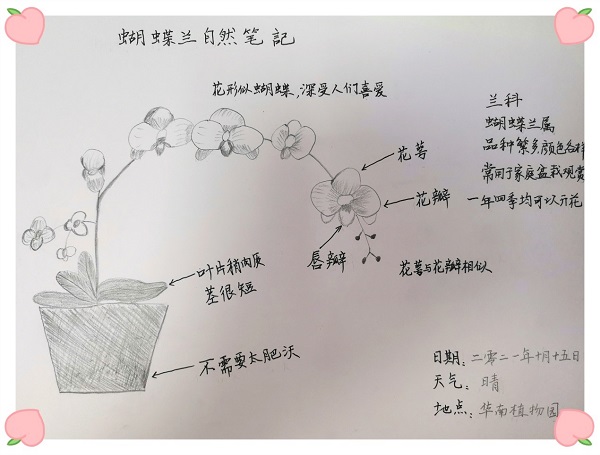 蝴蝶兰自然笔記
花形似蝴蝶,深受人们喜爱
兰科
蝴蝶兰属
品种繁多颜色各样
常用于家庭盆栽观赏
一年四季均可以开花
花萼
花瓣
唇瓣
花萼与花瓣相似
叶片稍肉质
茎很短
不需要太肥沃
日期:二零二一年十月十五日
天气:晴
地点:华南植物园